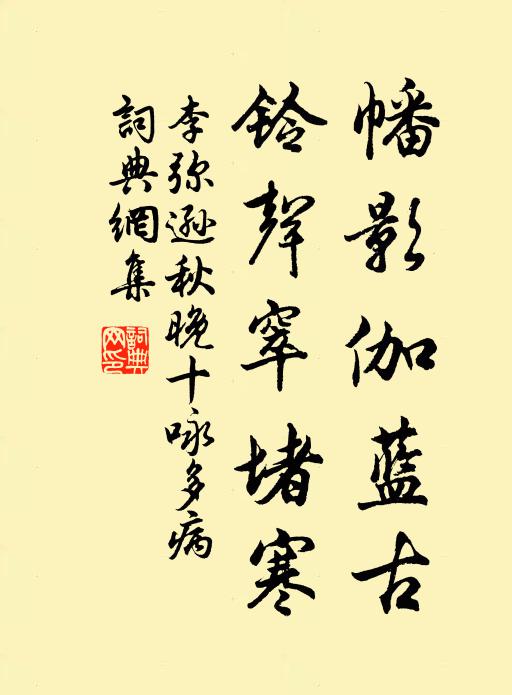 幡影伽藍古
鈴聲窣堵寒
李弥遜秋晚十咏多病
詞典網集
詞典網印